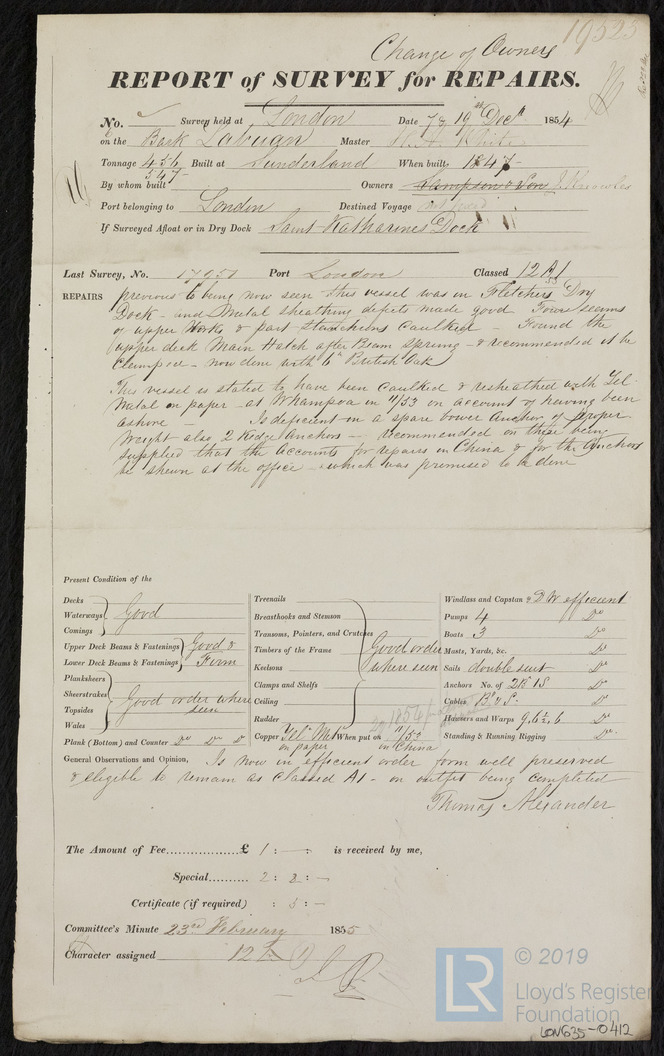 19525
Change of Owners
REPORT of SURVEY for REPAIRS.
No. Survey held at London Date 7 & 19th Decr 1854
on the Bark Labuan Master White
Tonnage 456 Built at Sunderland When built 1847
547
By whom built Owners Sampson & Son J Knowles
Port belonging to London Destined Voyage not fixed
If Surveyed Afloat or in Dry Dock Saint Katharines Dock
Last Survey, No. 17951 Port London Classed 12 A1
REPAIRS previous to being now seen this vessel was in Fletchers Dry
Dock - and Metal sheathing defects made good Four seams
of upper Works & part Stanchions Caulked - Found the
upper deck Main Hatch after Beam Sprung - & recommended it be
Clamped - now done with 6in British Oak
This vessel is stated to have been Caulked & resheathed with Yel
Metal on paper - at Whampoa in 11/53 on account of having been
ashore - Is deficient on a spare bower Anchor of proper
Weight also 2 Kedge Anchors - recommended on these being
supplied that the Accounts for repairs in China & for the Anchors
be shewn at the office - which was promised to be done
Present Condition of the
Decks
Waterways Good
Comings
Upper Deck Beams & Fastenings Good &
Lower Deck Beams & Fastenings Firm
Planksheers
Sheerstrakes Good order where
Topsides seen
Wales
Plank (Bottom) and Counter Do Do Do
Treenails
Breasthooks and Stemson
Transoms, Pointers, and Crutches
Timbers of the Frame Good order
Keelsons where seen
Clamps and Shelfs
Ceiling
Rudder
Copper Yel Metl When put on 11/53
on paper in China
Windlass and Capstan & D W efficient
Pumps 4 Do
Boats 3 Do
Masts, Yards, &c. Do
Sails double suit Do
Anchors No. of 2B 1S Do
Cables B & S Do
Hawsers and Warps 9. 6½, 6 Do
Standing & Running Rigging Do
General Observations and Opinion, Is now in efficient order form well preserved
& eligible to remain as Classed A1 - on outfit being completed
Thomas Alexander
The Amount of Fee.................. £ 1 : - : is received by me,
Special.......... 2 : 2 : -
Certificate (if required) : 5 : -
Committee's Minute 23rd February 1855
Character assigned 12
© 2019
LR
Lloyd's Register
Foundation
LON635-0412